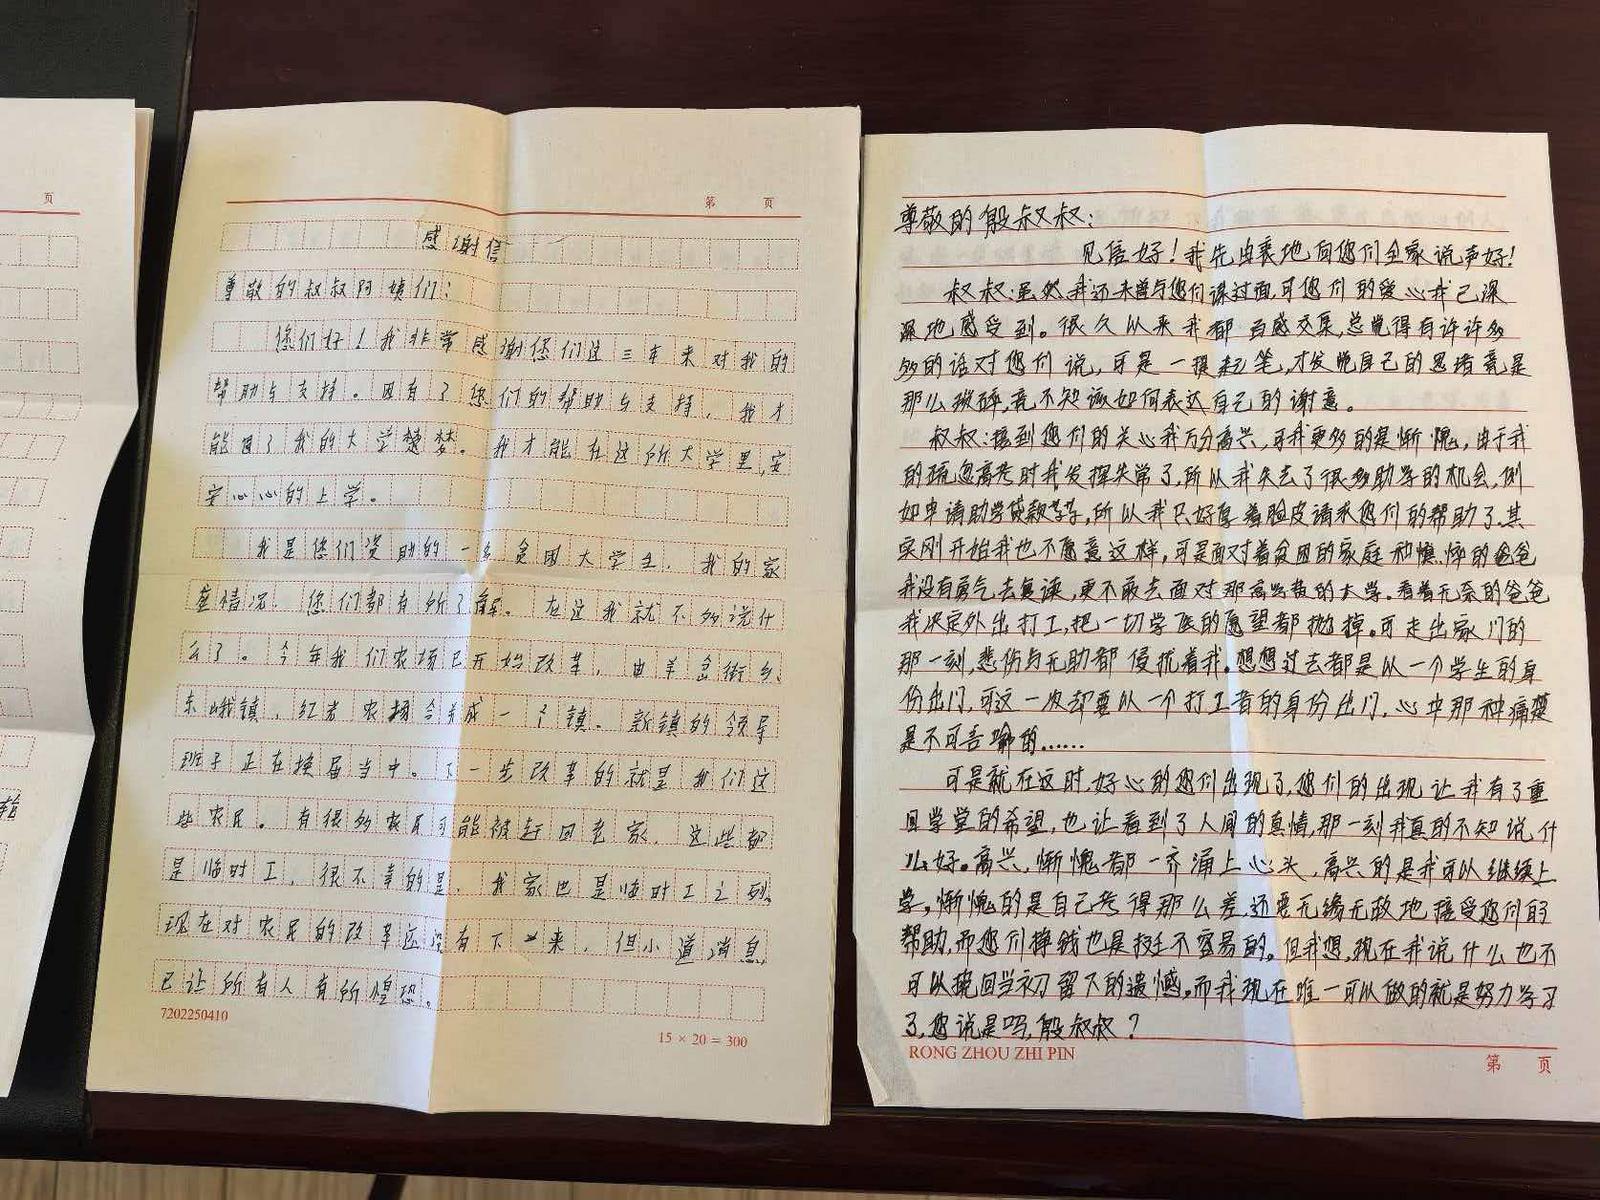 页
第 页
感谢信
尊敬的叔叔阿姨们:
您们好!我非常感谢您们这三年来对我的
帮助与支持。因有了您们的帮助与支持,我才
能圆了我的大学梦。我才能在这所大学里,安
安心心的上学。
我是您们资助的一名贫困大学生,我的家
庭情况,您们都有所了解。在这我就不多说什
么了。今年我们农场已开始改革,由羊岔街乡、
东峨镇,红光农场合并成一个镇。新镇的领导
班子正在换届当中。下一步改革的就是我们这
些农民。有很多农民可能被赶回老家,这些都
是临时工,很不幸的是,我家也是临时工之列。
现在对农民的改革还没有下来,但小道消息
已让所有人有所惶恐。
7202250410
15 × 20 = 300
尊敬的殷叔叔:
见信好!我先由衷地向您们全家说声好!
叔叔:虽然我还未曾与您们谋过面,可您们的爱心我已深
深地感受到。很久以来我都百感交集,总觉得有许许多
多的话对您们说,可是一提起笔,才发觉自己的思绪竟是
那么琐碎,竟不知该如何表达自己的谢意。
叔叔:接到您们的关心我万分高兴,可我更多的是惭愧,由于我
的疏忽高考时我发挥失常了,所以我失去了很多助学的机会,例
如申请助学贷款等等,所以我只好厚着脸皮请求您们的帮助了。其
实刚开始我也不愿意这样,可是面对着贫困的家庭和憔悴的爸爸
我没有勇气去复读,更不敢去面对那高学费的大学。看着无奈的爸爸
我决定外出打工,把一切学医的愿望都抛掉。可走出家门的
那一刻,悲伤与无助都侵扰着我。想想过去都是以一个学生的身
份出门,可这一次却要以一个打工者的身份出门,心中那种痛楚
是不可言喻的......
可是就在这时,好心的您们出现了,您们的出现让我有了重
回学堂的希望,也让看到了人间的真情,那一刻我真的不知说什
么好。高兴,惭愧都一齐涌上心头,高兴的是我可以继续上
学,惭愧的是自己考得那么差,还要无缘无故地接受您们的
帮助,而您们挣钱也是挺不容易的。但我想,现在我说什么也不
可以挽回当初留下的遗憾。而我现在唯一可以做的就是努力学习
了,您说是吗,殷叔叔?
RONG ZHOU ZHI PIN
第 页